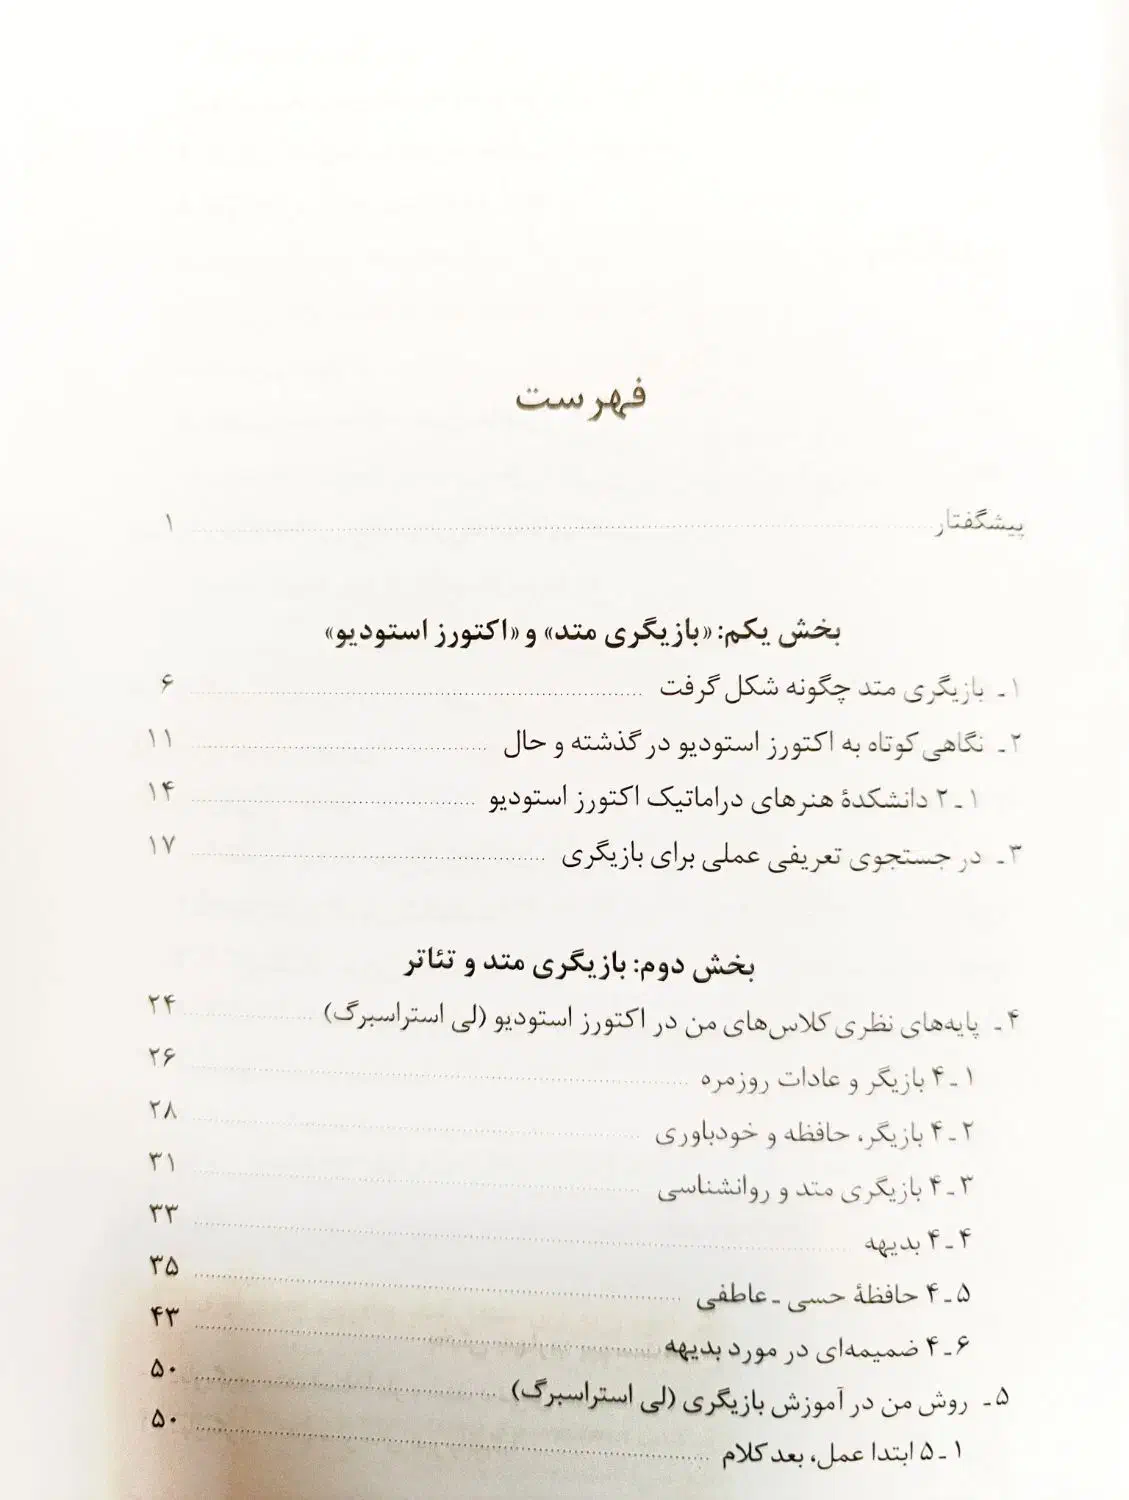 فهرست
پیشگفتار ........ ۱
بخش یکم: «بازیگری متد» و «اکتورز استودیو»
۱ـ بازیگری متد چگونه شکل گرفت ........ ۶
۲ـ نگاهی کوتاه به اکتورز استودیو در گذشته و حال ........ ۱۱
۱ـ۲ دانشکدهٔ هنرهای دراماتیک اکتورز استودیو ........ ۱۴
۳ـ در جستجوی تعریفی عملی برای بازیگری ........ ۱۷
بخش دوم: بازیگری متد و تئاتر
۴ـ پایه‌های نظری کلاس‌های من در اکتورز استودیو (لی استراسبرگ) ........ ۲۴
۱ـ۴ بازیگر و عادات روزمره ........ ۲۶
۲ـ۴ بازیگر، حافظه و خودباوری ........ ۲۸
۳ـ۴ بازیگری متد و روانشناسی ........ ۳۱
۴ـ۴ بدیهه ........ ۳۳
۵ـ۴ حافظهٔ حسی ـ عاطفی ........ ۳۵
۶ـ۴ ضمیمه‌ای در مورد بدیهه ........ ۴۳
۵ـ روش من در آموزش بازیگری (لی استراسبرگ) ........ ۵۰
۱ـ۵ ابتدا عمل، بعد کلام ........ ۵۰